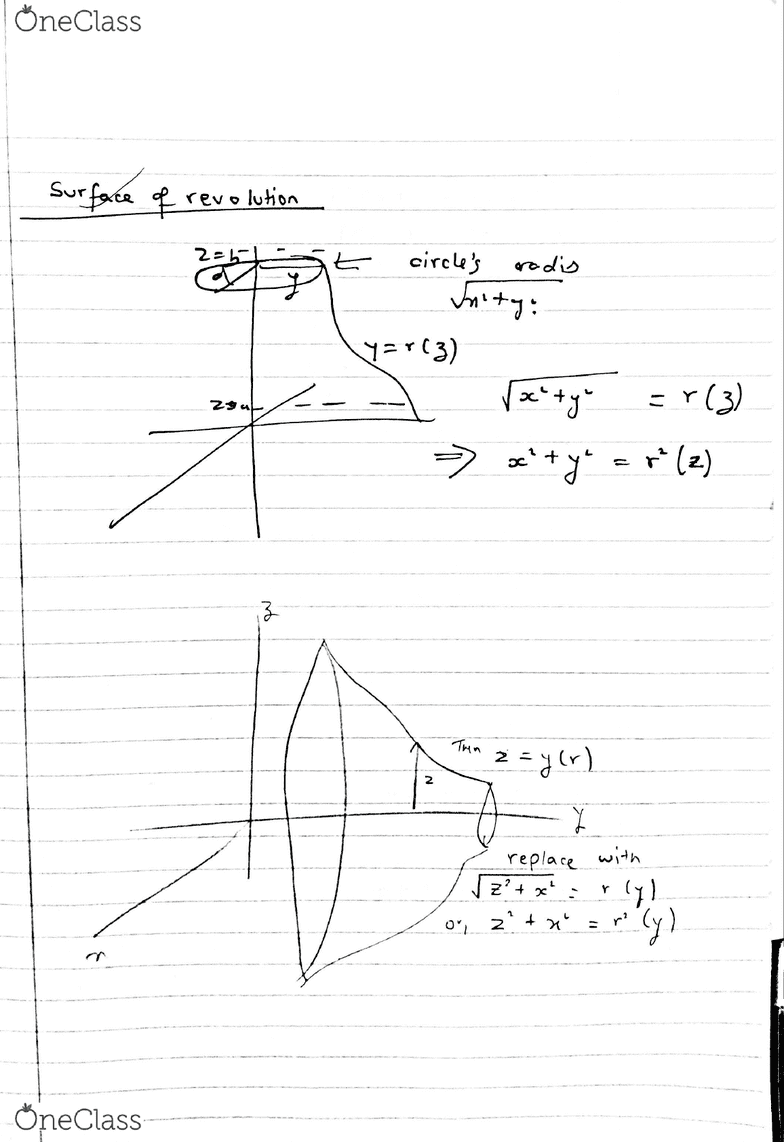 OneClass
Surface of revolution
z=b
circle's radis
y
√x²+y²
y=r(z)
z=a
√x²+y² = r(z)
⇒ x²+y² = r²(z)
z
Then z = y(r)
z
y
replace with
√z²+x² = r(y)
or, z²+x² = r²(y)
x
OneClass